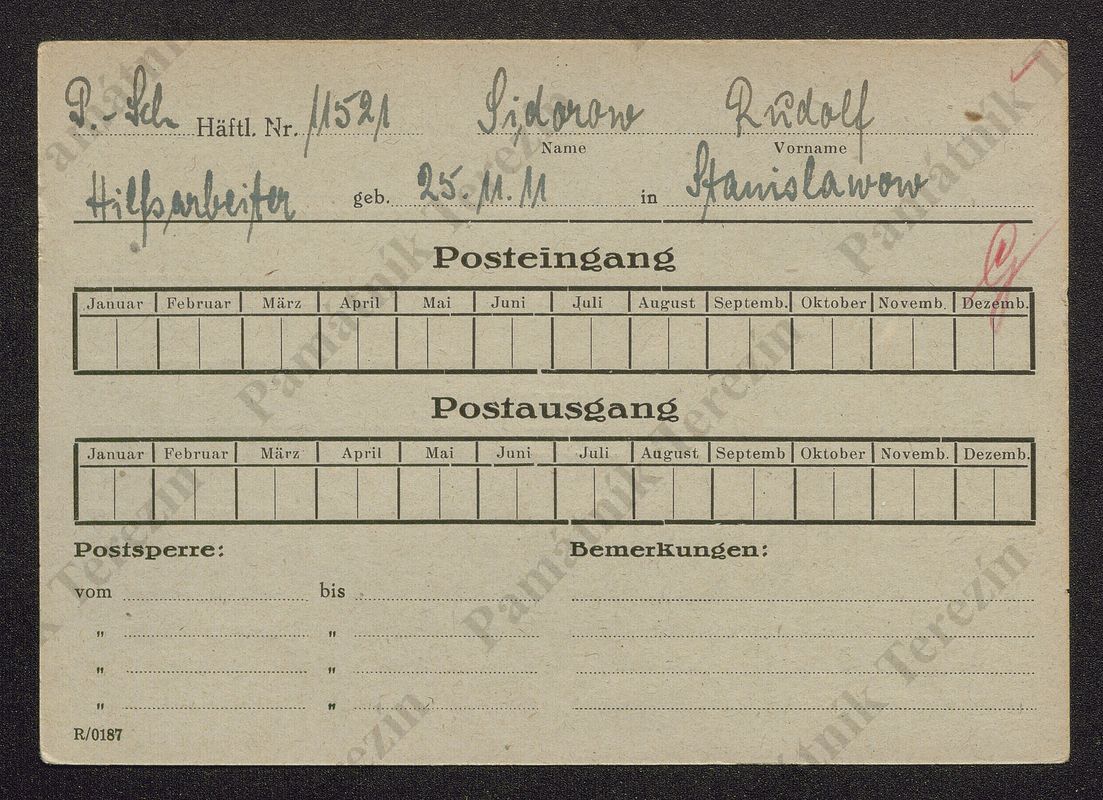 P.-Sch Häftl. Nr. 11521 Sidorow Rudolf
Name Vorname
Hilfsarbeiter geb. 25.11.11 in Stanislawow
Posteingang
Januar Februar März April Mai Juni Juli August Septemb. Oktober Novemb. Dezemb.
Postausgang
Januar Februar März April Mai Juni Juli August Septemb Oktober Novemb. Dezemb.
Postsperre: Bemerkungen:
vom bis
" "
" "
" "
R/0187
Památník Terezín